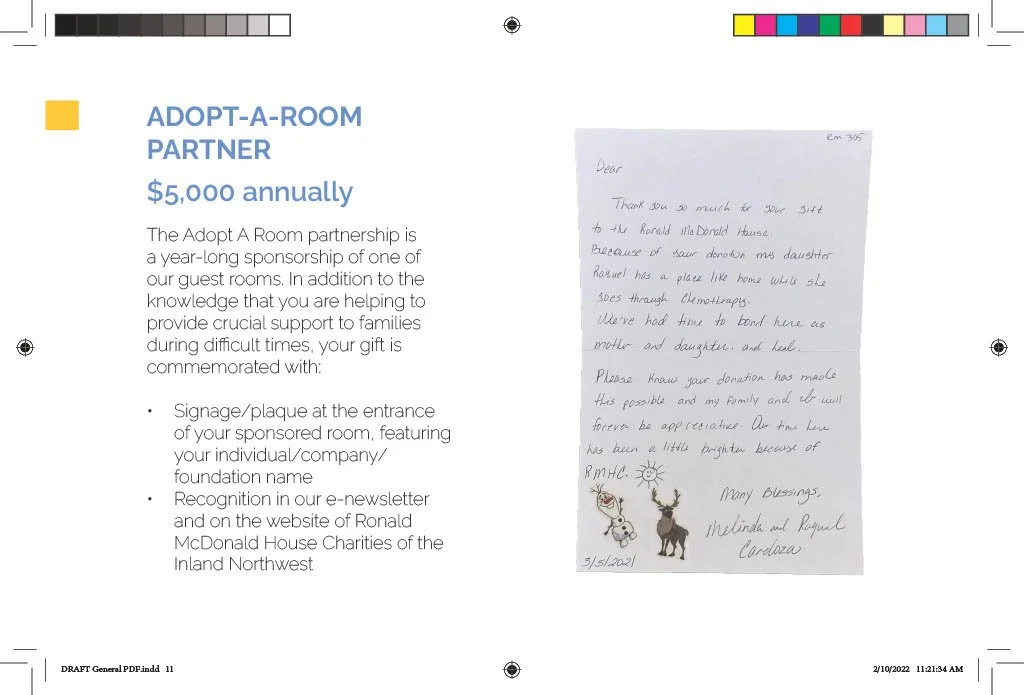 ADOPT-A-ROOM
PARTNER
$5,000 annually
The Adopt A Room partnership is
a year-long sponsorship of one of
our guest rooms. In addition to the
knowledge that you are helping to
provide crucial support to families
during difficult times, your gift is
commemorated with:
• Signage/plaque at the entrance
of your sponsored room, featuring
your individual/company/
foundation name
• Recognition in our e-newsletter
and on the website of Ronald
McDonald House Charities of the
Inland Northwest
Rm 305
Dear
Thank you so much for your gift
to the Ronald McDonald House.
Because of your donation my daughter
Raquel has a place like home while she
goes through Chemotherapy.
We've had time to bond here as
mother and daughter. and heal.
Please know your donation has made
this possible and my family and I will
forever be appreciative. Our time here
has been a little brighter because of
RMHC.
Many Blessings,
Melinda and Raquel
Cardoza
3/5/2021
DRAFT General PDF.indd 11
2/10/2022 11:21:34 AM